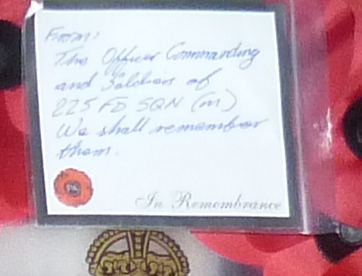 From:
The Officer Commanding
and Soldiers of
225 FD SQN (M)
We shall remember
them.
In Remembrance